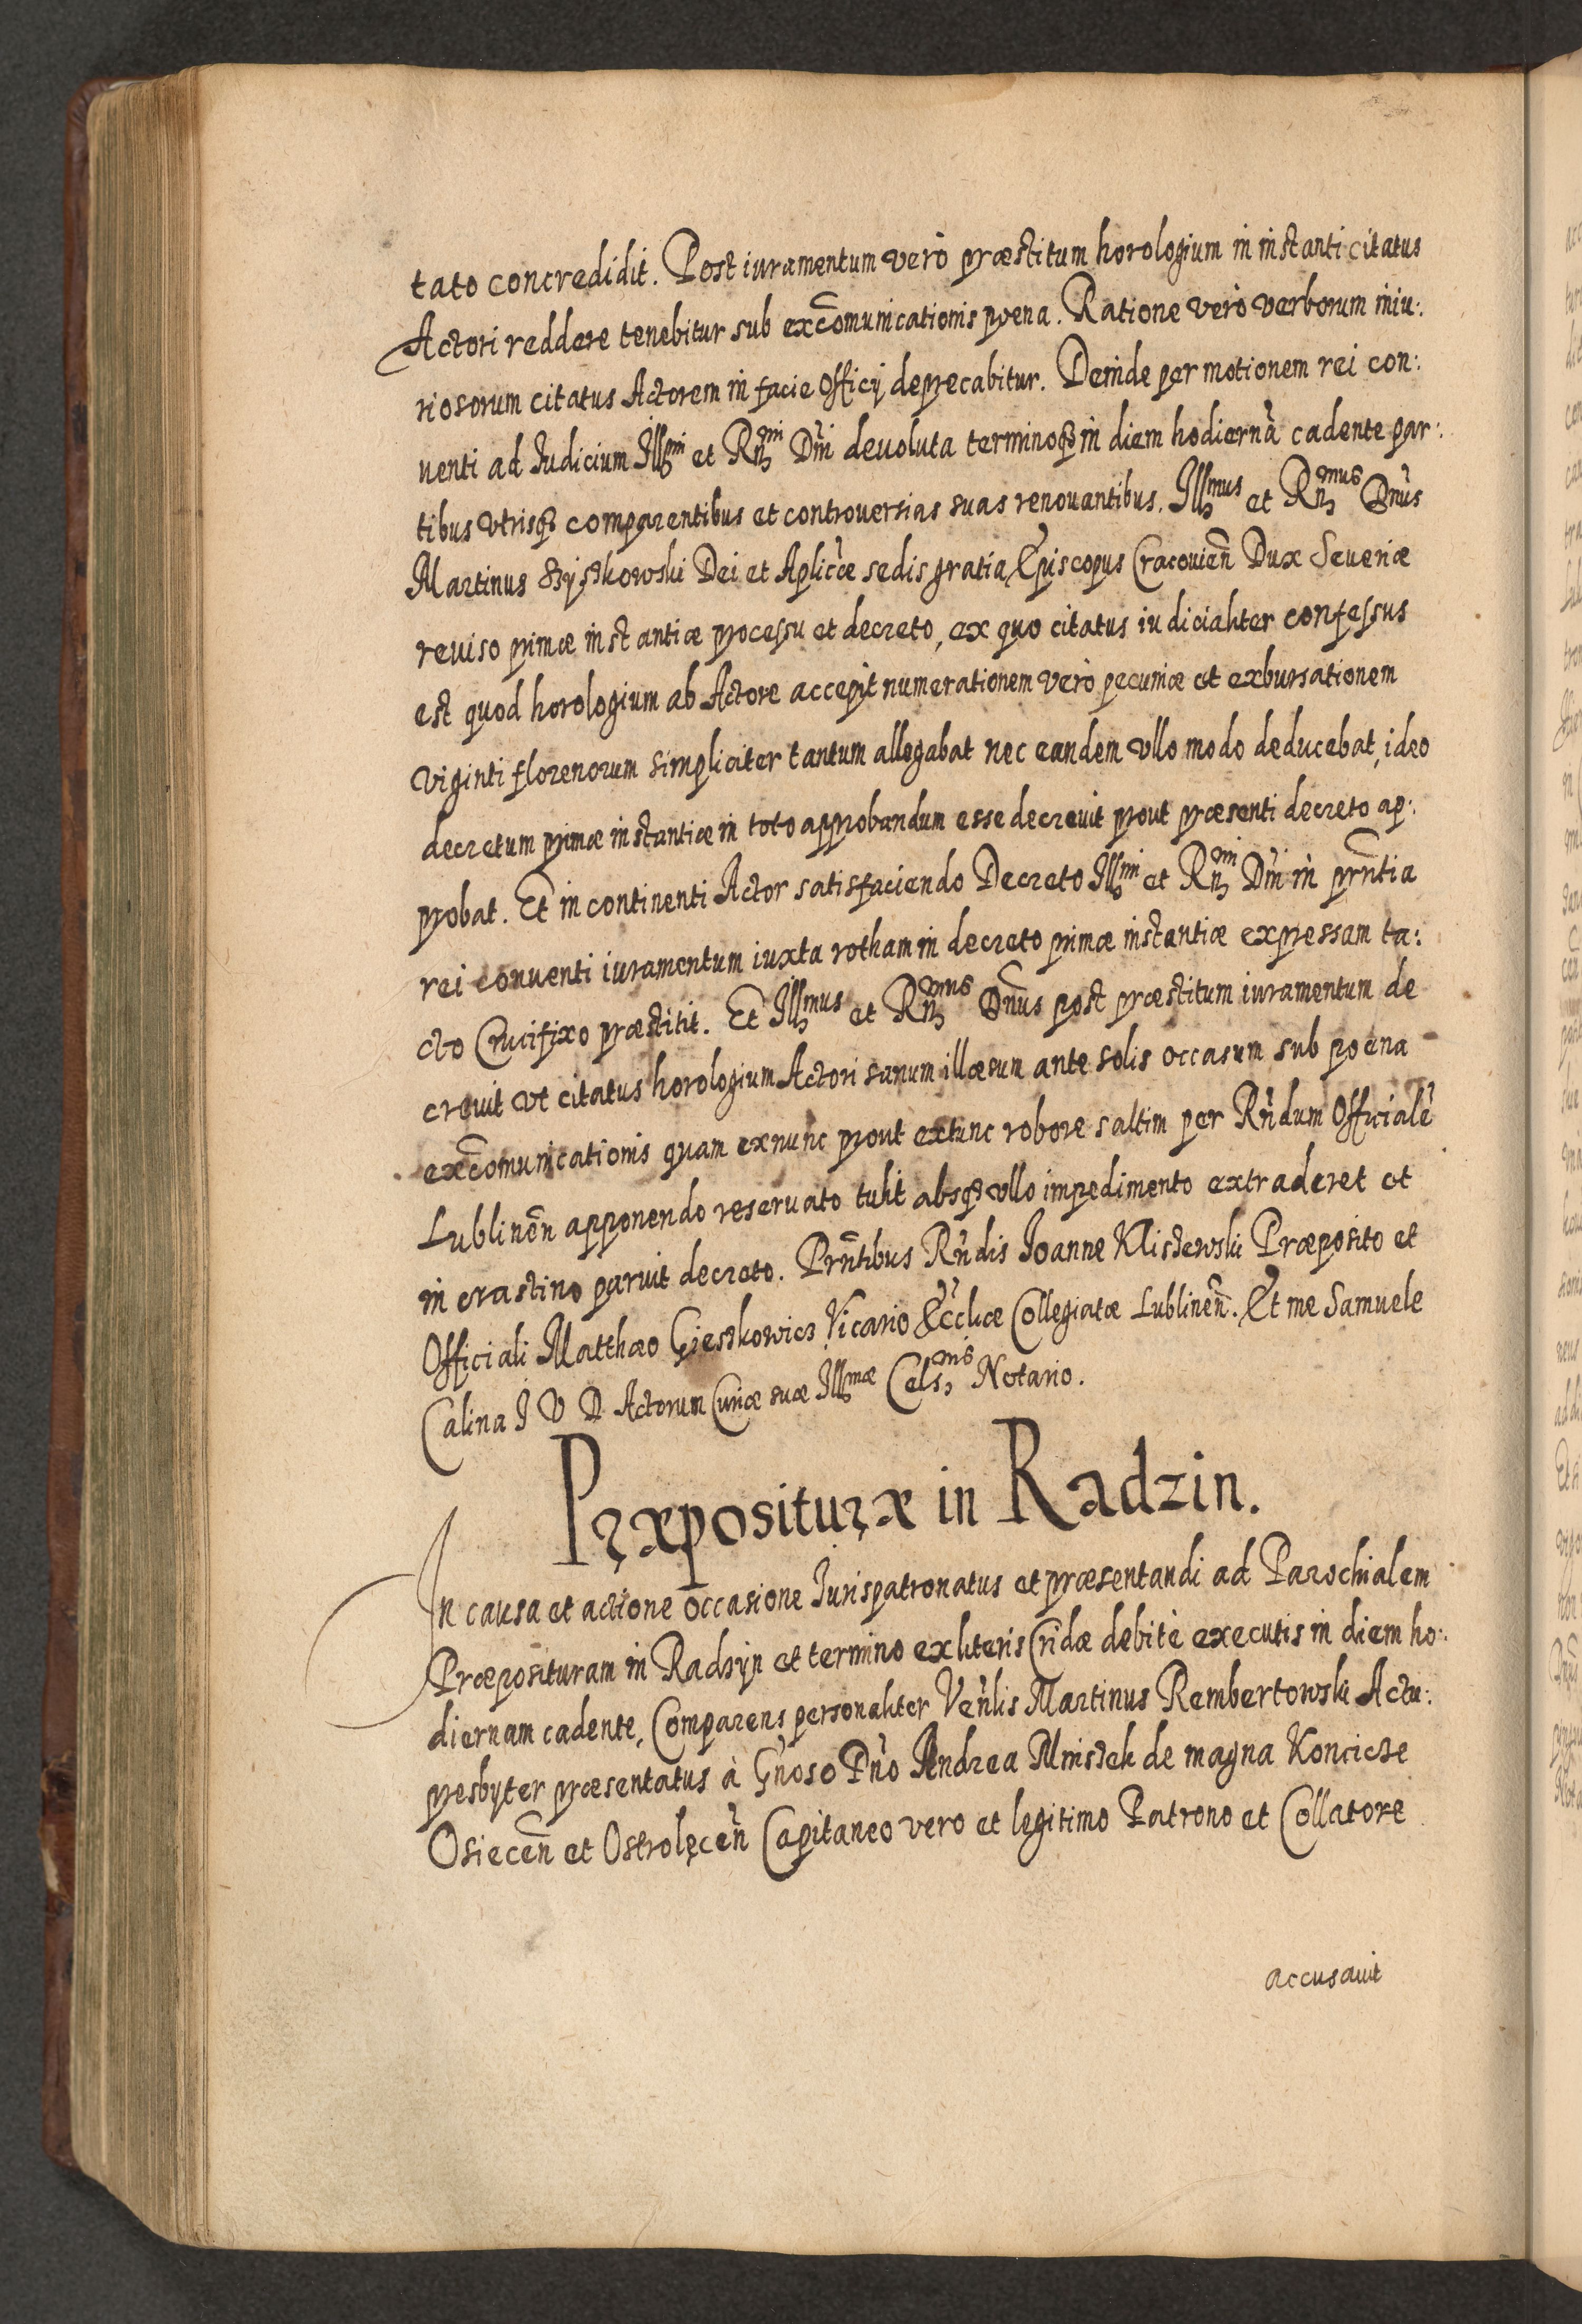 tato concredidit. Post iuramentum verò præstitum horologium in instanti citatus
Actori reddere tenebitur sub excōmunicationis pœna. Ratione verò verborum iniu:
riosorum citatus Actorem in facie Officij deprecabitur. Deinde per motionem rei con:
uenti ad Iudicium Illmi et Rmi Dñi deuoluta terminoq3 in diem hodiernā cadente par:
tibus vtrisq3 comparentibus et controuersias suas renouantibus. Illmus et Rmus Dnus
Martinus Szyszkowski Dei et Aplicæ sedis gratia Episcopus Cracouien̄ Dux Seueriæ
reuiso primæ instantiæ processu et decreto, ex quo citatus iudicialiter confessus
est quod horologium ab Actore accepit numerationem verò pecuniæ et exbursationem
viginti florenorum simpliciter tantum allegabat nec eandem vllo modo deducebat, ideo
decretum primæ instantiæ in toto approbandum esse decreuit prout præsenti decreto ap:
probat. Et in continenti Actor satisfaciendo Decreto Illmi et Rmi Dñi in prn̄tia
rei conuenti iuramentum iuxta rotham in decreto primæ instantiæ expressam ta:
cto Crucifixo præstitit. Et Illmus et Rmus Dnus post præstitum iuramentum de
creuit vt citatus horologium Actori sanum illæsum ante solis occasum sub pœna
excōmunicationis quam exnunc prout extunc robore saltim per Rn̄dum Officialē
Lublinen̄ apponendo reseruato tulit absq3 vllo impedimento extraderet et
in crastino paruit decreto. Prn̄tibus Rn̄dis Ioanne Kliszewski Præposito et
Officiali Matthæo Gieszkowicz Vicario Ecclicæ Collegiatæ Lublinen̄. Et me Samuele
Calina I V D Actorum Curiæ suæ Illmæ Celsnis Notario.
Præposituræ in Radzin.
In causa et actione occasione Iurispatronatus et præsentandi ad Parochialem
Præposituram in Radzyn et termino ex literis Cridæ debitè executis in diem ho:
diernam cadente, Comparens personaliter Ven̄lis Martinus Rembertowski Actu:
presbyter præsentatus à Gn̄oso Dn̄o Andrea Mniszek de magna Koncicze
Osiecen̄ et Ostrolęcen̄ Capitaneo vero et legitimo Patrono et Collatore
accusauit